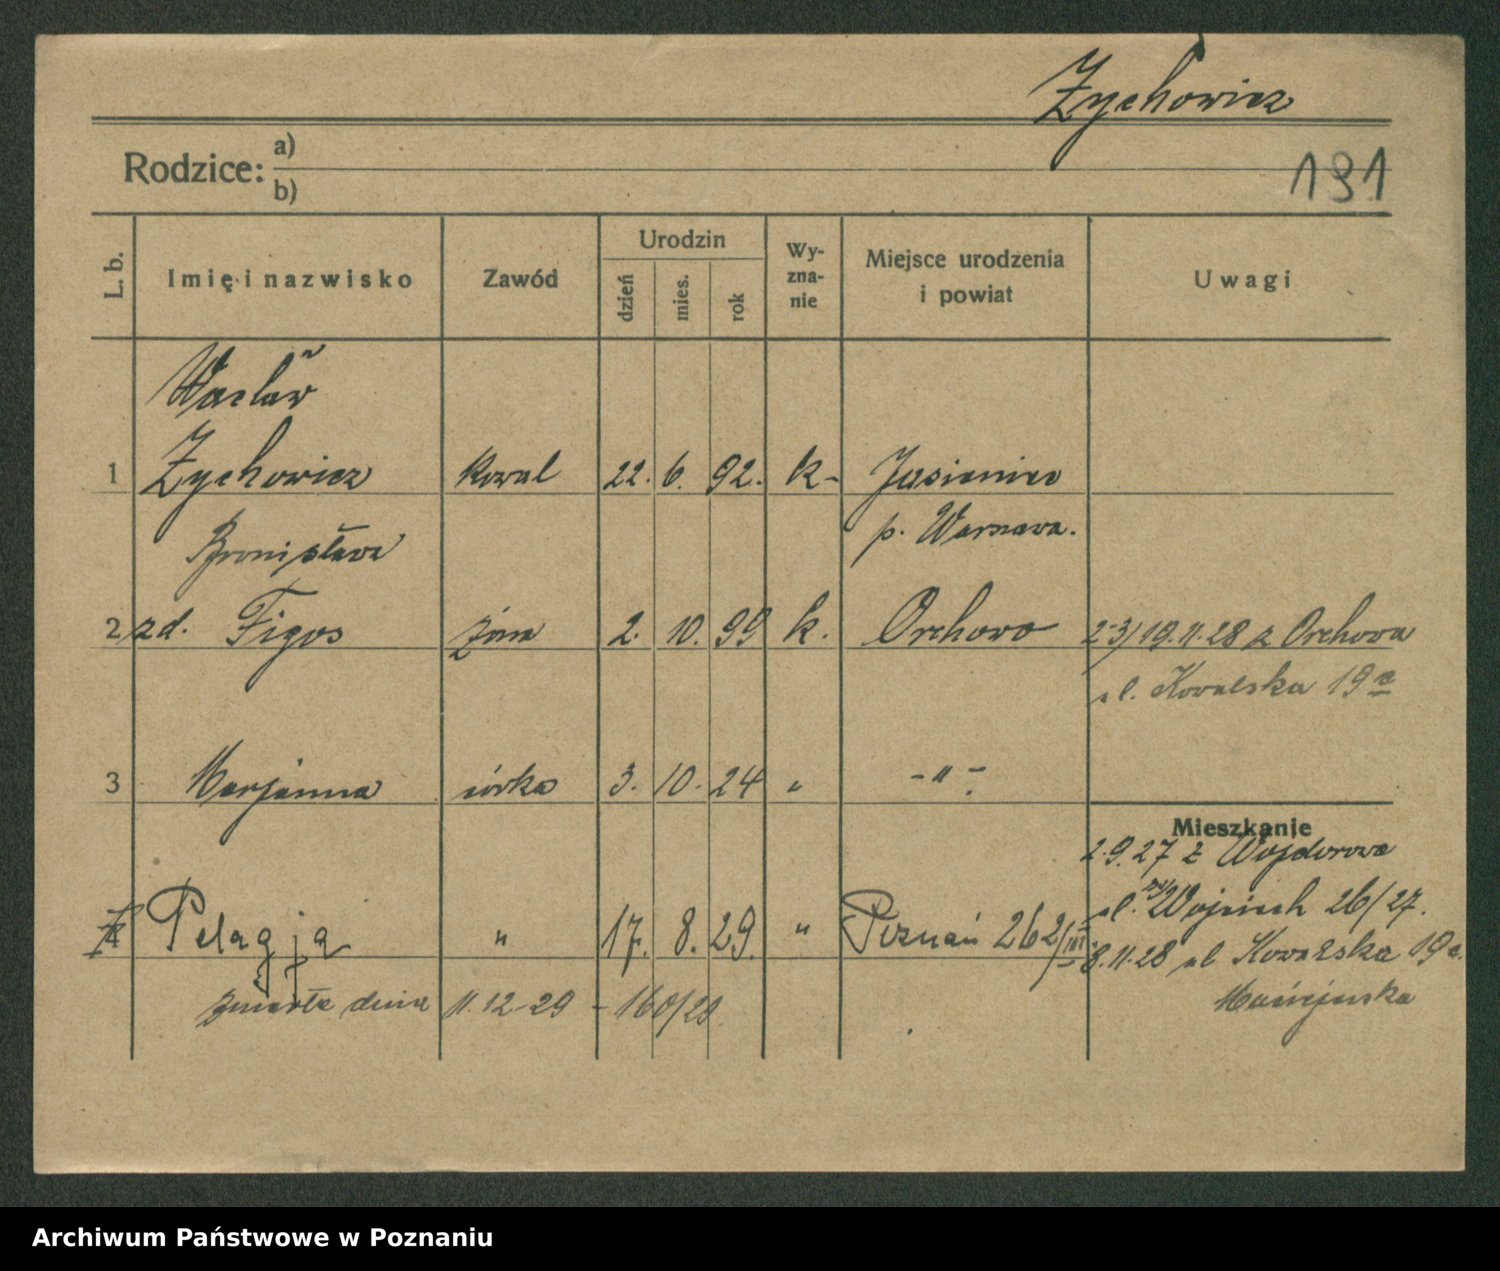 Żychowicz
Rodzice: a)
b)
191
L. b.
Imię i nazwisko
Zawód
Urodzin
dzień
mies.
rok
Wy-
zna-
nie
Miejsce urodzenia
i powiat
Uwagi
Wacław
1 Żychowicz kowal 22. 6. 92. k- Jasieniec
p. Warszawa.
Bronisława
2 zd. Figos żona 2. 10. 99 k. Orchowo 2-3/19.11.28 z Orchowa
ul. Kowalska 19a
3 Marjanna córka 3. 10. 24 " - " -
Mieszkanie
2.9.27 z Wojdorowa
ul. Św. Wojciech 26/27.
4 Pelagja " 17. 8. 29. " Poznań 262/III 8.11.28 ul Kowalska 19a.
zmarła dnia 11.12-29 - 160/29